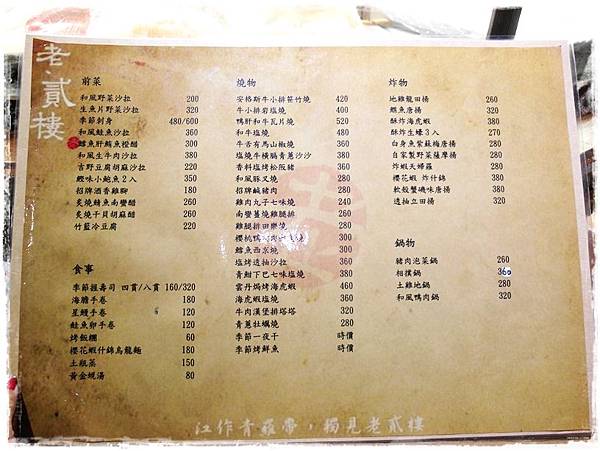 老.貳樓
前菜
和風野菜沙拉 200
生魚片野菜沙拉 320
季節刺身 480/600
和風鮭魚沙拉 360
鱈魚肝鮪魚橙醋 300
和風生牛肉沙拉 380
吉野豆腐胡麻沙拉 220
鰹味小鮑魚2入 350
招牌酒香雞腳 180
炙燒鯖魚南蠻醋 260
炙燒干貝胡麻醋 260
竹籃冷豆腐 220
食事
季節握壽司 四貫/八貫 160/320
海膽手卷 180
星鰻手卷
鮭魚卵手卷 120
烤飯糰 60
櫻花蝦什錦烏龍麵 180
土瓶蒸 150
黃金蜆湯 80
燒物
安格斯牛小排笹竹燒 420
牛小排岩塩燒 400
鴨肝和牛瓦片燒 520
和牛塩燒 480
牛舌宥馬山椒燒 380
塩燒牛橫膈青蔥沙沙 380
香料塩烤松阪豬 360
和風豚叉燒 280
招牌鹹豬肉 280
雞肉丸子七味燒 240
南蠻薑燒雞腿排 260
雞腿排田樂燒 280
櫻桃鴨 300
鱈魚西京燒 300
塩烤透抽沙拉 360
青魽下巴七味塩燒 380
雲丹焗烤海虎蝦 460
海虎蝦塩燒 360
牛肉漢堡排塔塔 320
青蔥牡蠣燒 280
季節一夜干 時價
季節烤鮮魚 時價
炸物
地雞龍田揚 260
鰕魚唐揚 320
酥炸海虎蝦 380
酥炸生蠔3入 270
白身魚紫蘇梅唐揚 280
自家製野菜薩摩揚 180
炸蝦天婦羅 280
櫻花蝦 炸什錦 260
軟殼蟹磯味唐揚 380
透抽立田揚 360
鍋物
豬肉泡菜鍋 260
相撲鍋 360
土雞地鍋 280
和風鴨肉鍋 320
江作青羅帶，獨見老貳樓